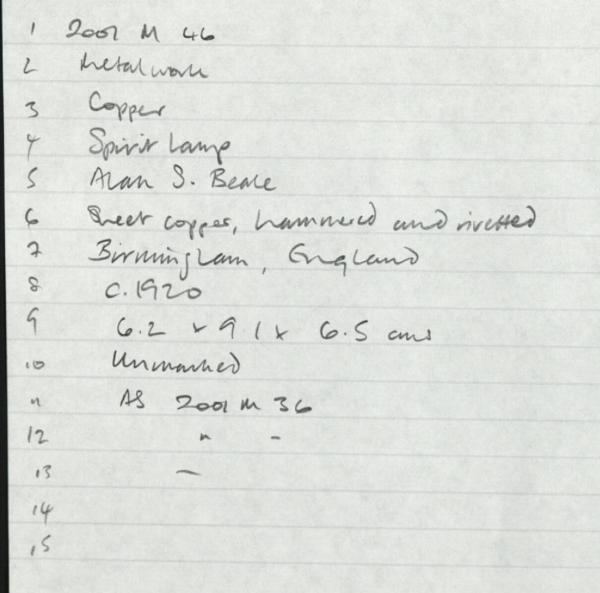 1 2001 M 46
2 Metalwork
3 Copper
4 Spirit Lamp
5 Alan S. Beale
6 Sheet copper, hammered and rivetted
7 Birmingham, England
8 c. 1920
9 6.2 x 9.1 x 6.5 cms
10 Unmarked
11 AS 2001 M 36
12 " -
13 —
14
15